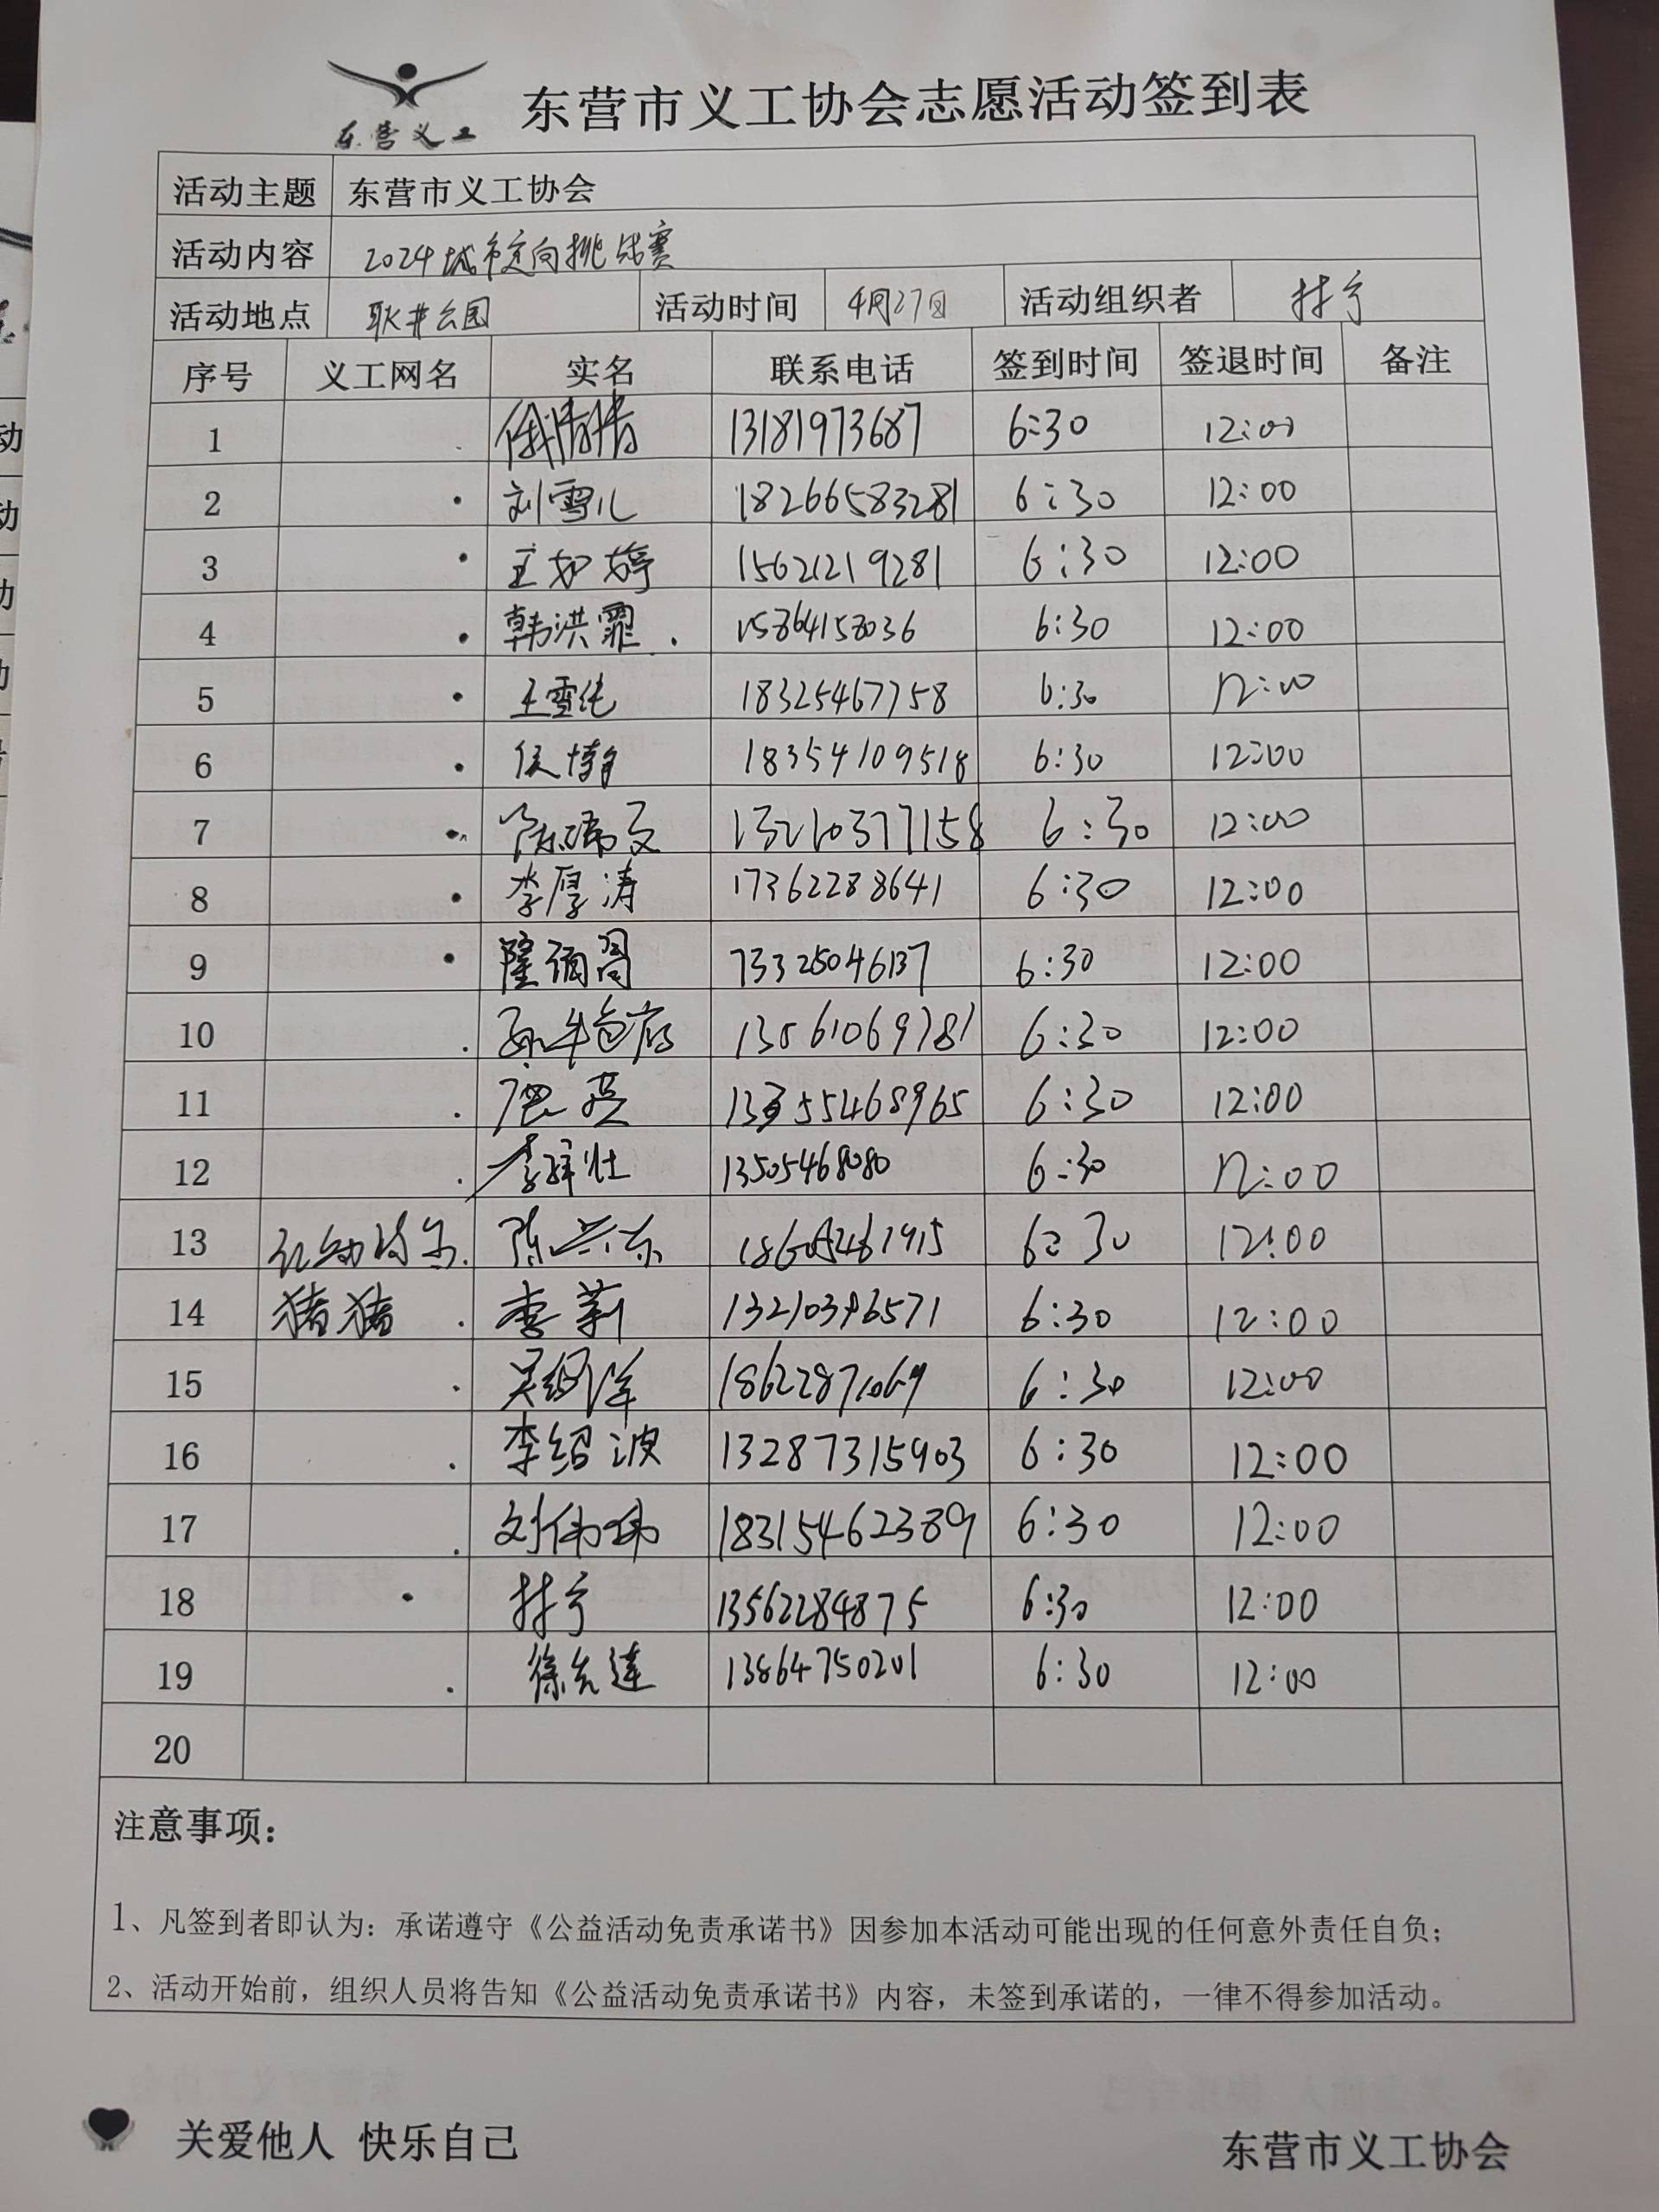 东营义工
东营市义工协会志愿活动签到表
活动主题 东营市义工协会
活动内容 2024城市定向挑战赛
活动地点 耿井公园 活动时间 4月27日 活动组织者
序号 义工网名 实名 联系电话 签到时间 签退时间 备注
1 13181973687 6:30 12:00
2 刘雪儿 18266583281 6:30 12:00
3 王如婷 15621219281 6:30 12:00
4 韩洪霏 15864158036 6:30 12:00
5 王雪纯 18325467758 6:30 12:00
6 侯博翰 18354109518 6:30 12:00
7 陈瑞文 13210377158 6:30 12:00
8 李厚涛 17362288641 6:30 12:00
9 6:30 12:00
10 13561069781 6:30 12:00
11 唐英 13355468965 6:30 12:00
12 13505468080 6:30 12:00
13 陈兴东 18605461915 6:30 12:00
14 猪猪 李莉 13210396571 6:30 12:00
15 6:30 12:00
16 李绍波 13287315903 6:30 12:00
17 刘伟玮 18315462389 6:30 12:00
18 13562284875 6:30 12:00
19 13864750201 6:30 12:00
20
注意事项：
1、凡签到者即认为：承诺遵守《公益活动免责承诺书》因参加本活动可能出现的任何意外责任自负；
2、活动开始前，组织人员将告知《公益活动免责承诺书》内容，未签到承诺的，一律不得参加活动。
关爱他人 快乐自己
东营市义工协会